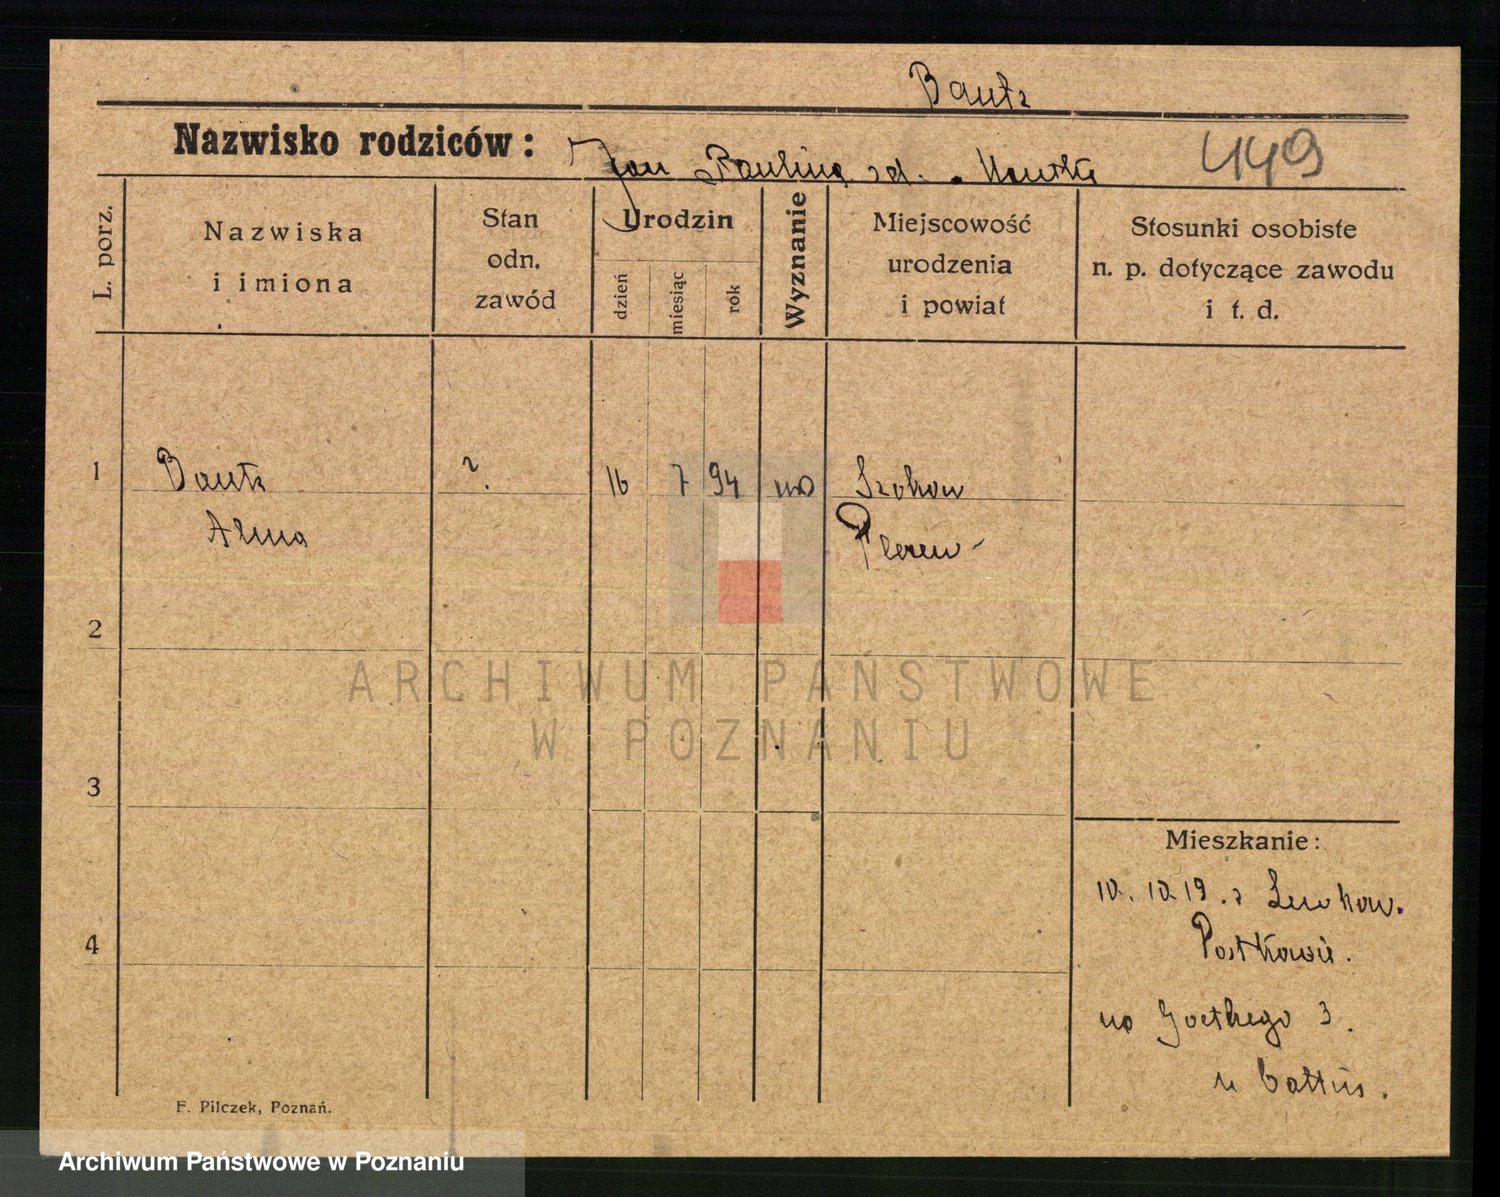 Bautz
Nazwisko rodziców: Jan Paulina zd.
449
L. porz.
Nazwiska
i imiona
Stan
odn.
zawód
Urodzin
dzień
miesiąc
rok
Wyznanie
Miejscowość
urodzenia
i powiat
Stosunki osobiste
n. p. dotyczące zawodu
i t. d.
1
Bautz
Alma
?
16
7
94
Pleszew
2
3
4
Mieszkanie:
10. 10. 19. z
na Goethego 3.
u
F. Pilczek, Poznań.
ARCHIWUM PAŃSTWOWE
W POZNANIU
Archiwum Państwowe w Poznaniu